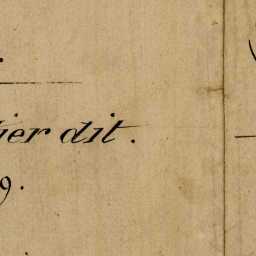 ier dit.
9.